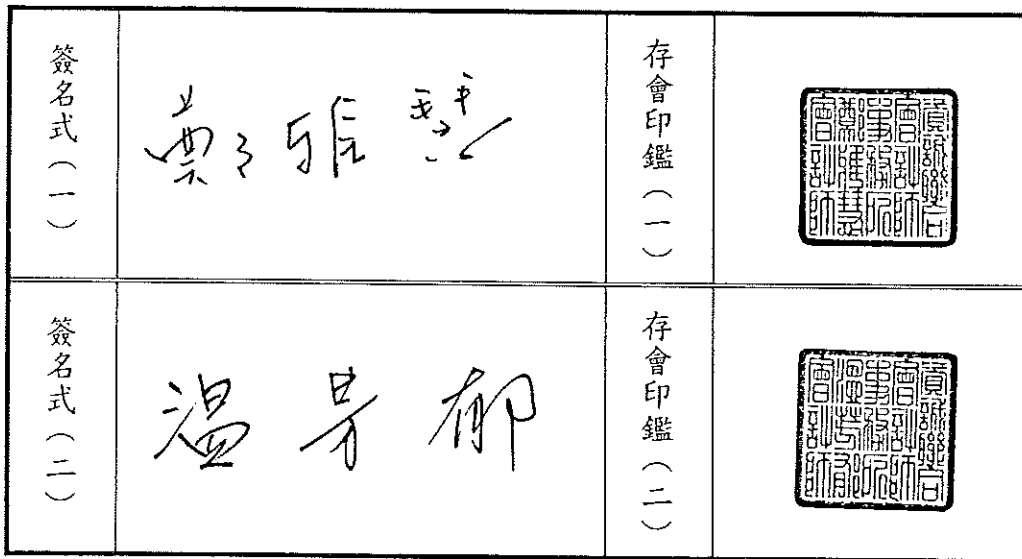 簽名式（一）
鄭雅慧
存會印鑑（一）
資誠聯合
會計師
事務所
鄭雅慧
會計師
簽名式（二）
溫芳郁
存會印鑑（二）
資誠聯合
會計師
事務所
溫芳郁
會計師